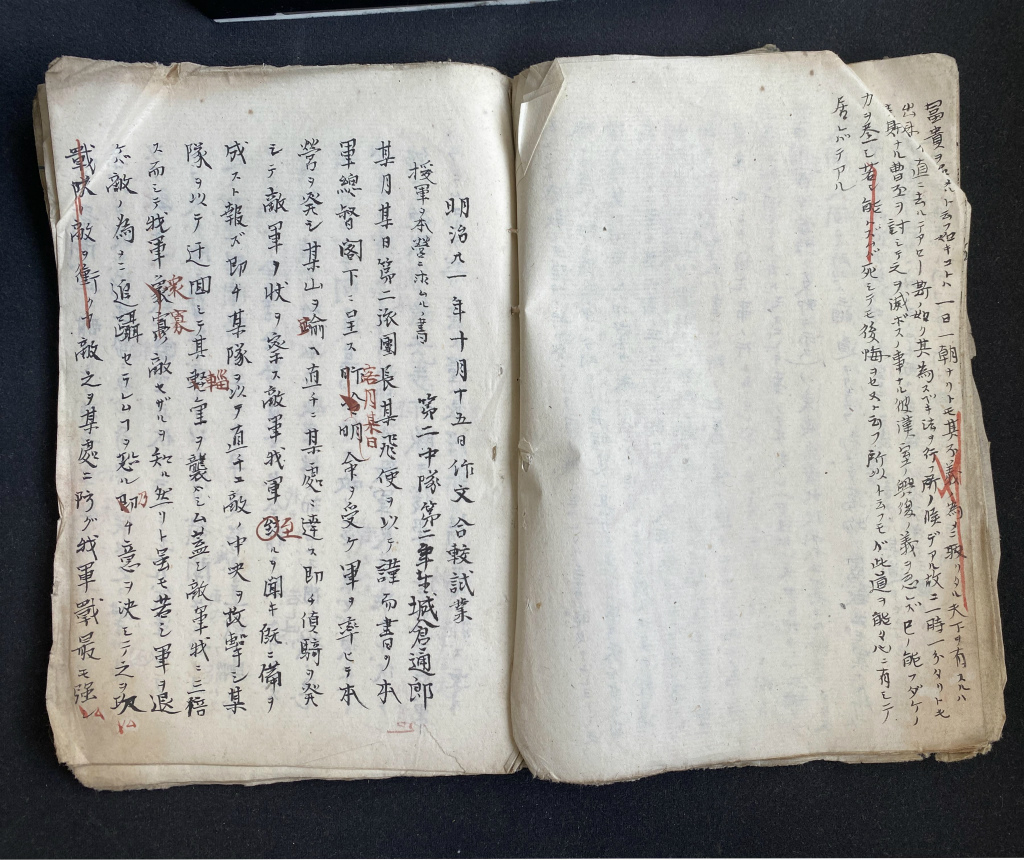 富貴ヲ
一日一朝ナリトモ其不義ノ為メニ取リタル天下ヲ有スルハ
出来ノ直ニ去ルテアセー斯ノ如リ其為スベキ法ヲ行フ所ノ陸デアル故ニ一時一分タリトモ
賊ナル曹丕ヲ討シテ之ヲ滅ボスノ事ナル彼漢室ノ興復ノ義ヲ忘レズ己ノ能フダケノ
力ヲ尽シ若シ能ハズバ死シテモ後悔ヲセヌト云フ所以ト云フモガ此道ヲ能クルニ有シテ
居ルデアル
明治九年十月十五日作文合較試業
援軍ヲ本營ニ求ムルノ書
第二中隊第二年生城倉通郎
某月某日第二旅團長某飛便ヲ以テ謹而書ヲ本
軍總督閣下ニ呈ス昨今明命ヲ受ケ軍ヲ率ヒテ本
客月某日
營ヲ発シ某山ヲ踰ヘ直チニ某處ニ達ス即チ偵騎ヲ発
シテ敵軍ノ状ヲ察ス敵軍我軍到ルヲ聞キ既ニ備ヲ
至
成スト報ズ即チ某隊ヲ以テ直チニ敵ノ中央ヲ攻撃シ某
隊ヲ以テ迂囬シテ其輜重ヲ襲ハシム蓋シ敵軍我ニ三倍
輜
ス而シテ我軍衆寡敵セザルヲ知ル然リト虽モ若シ軍ヲ退
衆寡
忽敵ノ為メニ追躡セラレム丁ヲ恐ル即チ意ヲ決シテ之ヲ攻
乃
戰
敵ヲ衝ク
敵之ヲ某處ニ防グ我軍戰最モ強シ